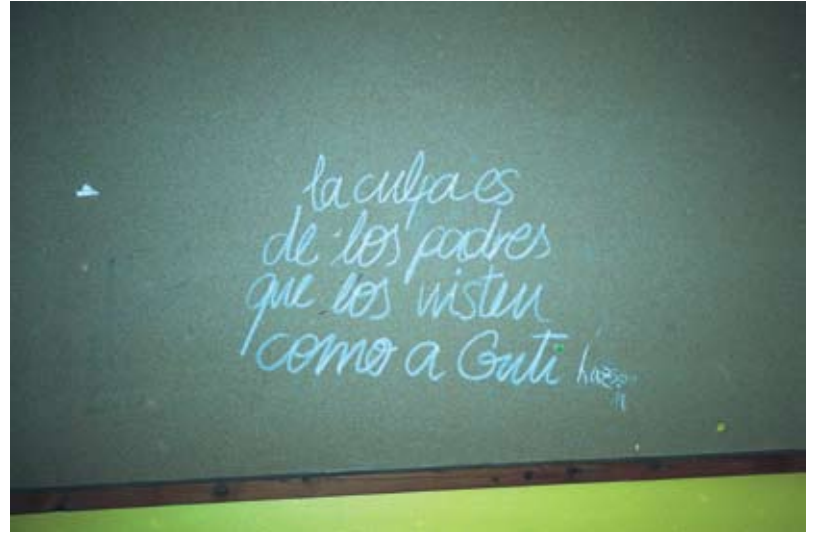 la culpa es
de los padres
que los visten
como a Guti